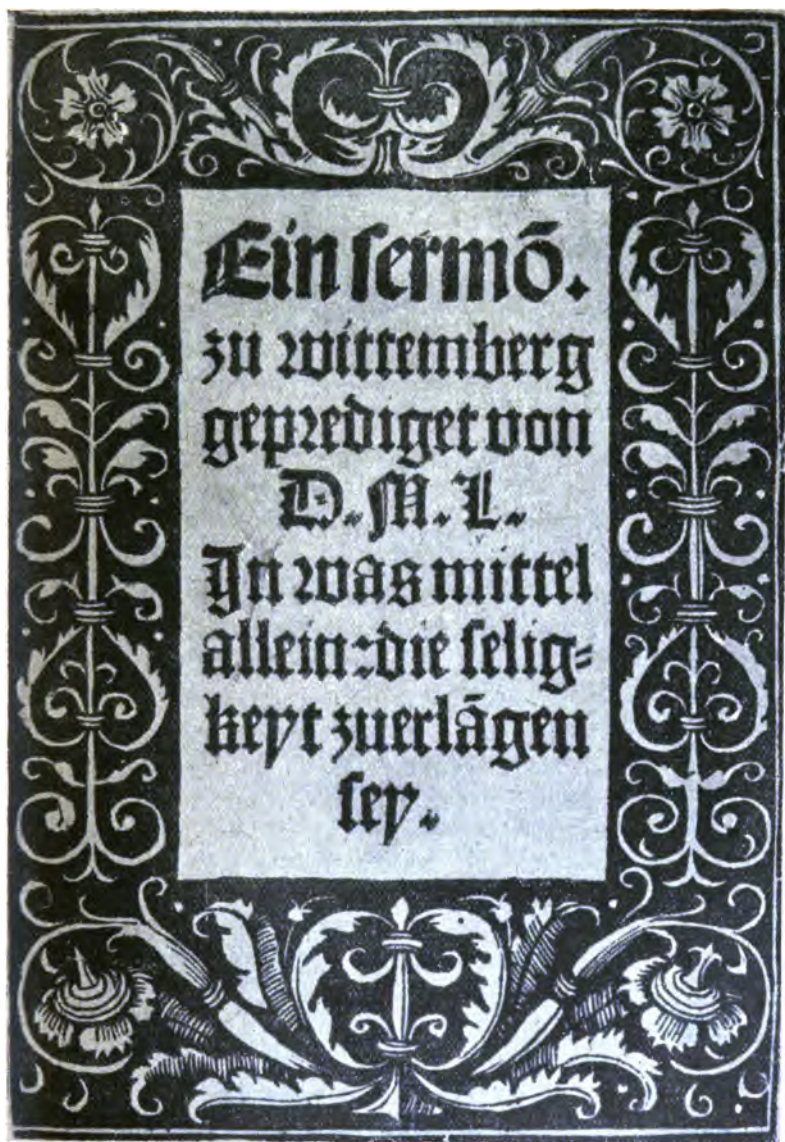 Ein sermō.
zu wittemberg
geprediget von
D. M. L.
In was mittel
allein: die selig=
keyt zuerlāgen
sey.